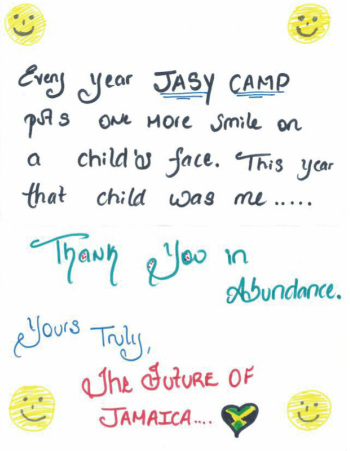 Every Year JASY CAMP
puts one more smile on
a child's face. This year
that child was me.....
Thank You in
Abundance.
Yours Truly,
The Future OF
JAMAICA....